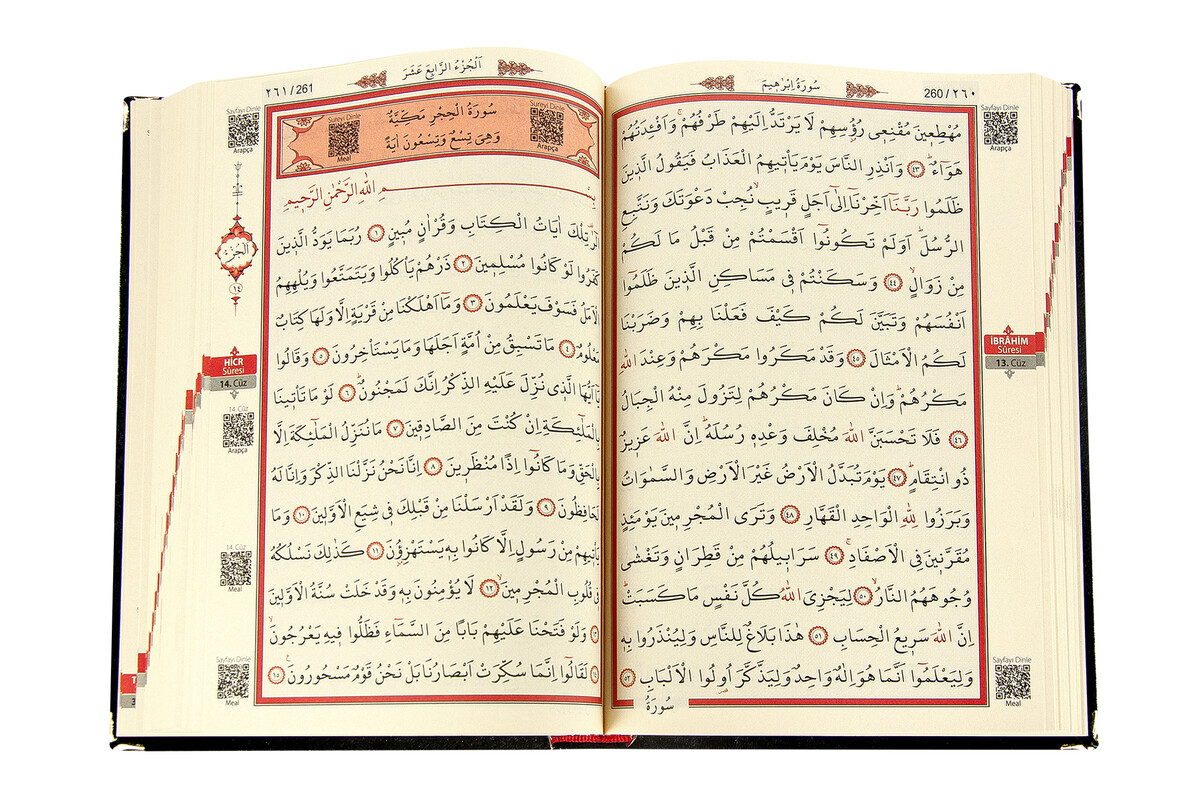 سُورَةُ اِبْرٰه۪يمَ
260 / ٢٦٠
Sayfayı Dinle
Arapça
مُهْطِع۪ينَ مُقْنِع۪ي رُؤُ۫سِهِمْ لَا يَرْتَدُّ اِلَيْهِمْ طَرْفُهُمْۚ وَاَفْـِٔدَتُهُمْ
هَوَٓاءٌۜ ﴿٤٣﴾ وَاَنْذِرِ النَّاسَ يَوْمَ يَأْت۪يهِمُ الْعَذَابُ فَيَقُولُ الَّذ۪ينَ
ظَلَمُوا رَبَّنَٓا اَخِّرْنَٓا اِلٰٓى اَجَلٍ قَر۪يبٍۙ نُجِبْ دَعْوَتَكَ وَنَتَّبِعِ
الرُّسُلَۜ اَوَلَمْ تَكُونُٓوا اَقْسَمْتُمْ مِنْ قَبْلُ مَا لَكُمْ
مِنْ زَوَالٍۙ ﴿٤٤﴾ وَسَكَنْتُمْ ف۪ي مَسَاكِنِ الَّذ۪ينَ ظَلَمُٓوا
اَنْفُسَهُمْ وَتَبَيَّنَ لَكُمْ كَيْفَ فَعَلْنَا بِهِمْ وَضَرَبْنَا
لَكُمُ الْاَمْثَالَ ﴿٤٥﴾ وَقَدْ مَكَرُوا مَكْرَهُمْ وَعِنْدَ اللّٰهِ
مَكْرُهُمْۜ وَاِنْ كَانَ مَكْرُهُمْ لِتَزُولَ مِنْهُ الْجِبَالُ
﴿٤٦﴾ فَلَا تَحْسَبَنَّ اللّٰهَ مُخْلِفَ وَعْدِه۪ رُسُلَهُۜ اِنَّ اللّٰهَ عَز۪يزٌ
ذُو انْتِقَامٍۜ ﴿٤٧﴾ يَوْمَ تُبَدَّلُ الْاَرْضُ غَيْرَ الْاَرْضِ وَالسَّمٰوَاتُ
وَبَرَزُوا لِلّٰهِ الْوَاحِدِ الْقَهَّارِ ﴿٤٨﴾ وَتَرَى الْمُجْرِم۪ينَ يَوْمَئِذٍ
مُقَرَّن۪ينَ فِي الْاَصْفَادِۚ ﴿٤٩﴾ سَرَاب۪يلُهُمْ مِنْ قَطِرَانٍ وَتَغْشٰى
وُجُوهَهُمُ النَّارُۙ ﴿٥٠﴾ لِيَجْزِيَ اللّٰهُ كُلَّ نَفْسٍ مَا كَسَبَتْۜ
اِنَّ اللّٰهَ سَر۪يعُ الْحِسَابِ ﴿٥١﴾ هٰذَا بَلَاغٌ لِلنَّاسِ وَلِيُنْذَرُوا بِه۪
وَلِيَعْلَمُٓوا اَنَّمَا هُوَ اِلٰهٌ وَاحِدٌ وَلِيَذَّكَّرَ اُو۬لُوا الْاَلْبَابِ ﴿٥٢﴾
سُورَةُ
İBRÂHİM
Sûresi
13. Cüz
Sayfayı Dinle
Meal
اَلْجُزْءُ الرَّابِعَ عَشَرَ
٢٦١ / 261
Sayfayı Dinle
Arapça
Sureyi Dinle
Arapça
Sureyi Dinle
Meal
سُورَةُ الْحِجْرِ مَكِّيَّةٌ
وَهِيَ تِسْعٌ وَتِسْعُونَ اٰيَةً
بِسْمِ اللّٰهِ الرَّحْمٰنِ الرَّح۪يمِ
الٓرٰ۠ تِلْكَ اٰيَاتُ الْكِتَابِ وَقُرْاٰنٍ مُب۪ينٍ ﴿١﴾ رُبَمَا يَوَدُّ الَّذ۪ينَ
كَفَرُوا لَوْ كَانُوا مُسْلِم۪ينَ ﴿٢﴾ ذَرْهُمْ يَأْكُلُوا وَيَتَمَتَّعُوا وَيُلْهِهِمُ
الْاَمَلُ فَسَوْفَ يَعْلَمُونَ ﴿٣﴾ وَمَٓا اَهْلَكْنَا مِنْ قَرْيَةٍ اِلَّا وَلَهَا كِتَابٌ
مَعْلُومٌ ﴿٤﴾ مَا تَسْبِقُ مِنْ اُمَّةٍ اَجَلَهَا وَمَا يَسْتَأْخِرُونَ ﴿٥﴾ وَقَالُوا
يَٓا اَيُّهَا الَّذ۪ي نُزِّلَ عَلَيْهِ الذِّكْرُ اِنَّكَ لَمَجْنُونٌۜ ﴿٦﴾ لَوْ مَا تَأْت۪ينَا
بِالْمَلٰٓئِكَةِ اِنْ كُنْتَ مِنَ الصَّادِق۪ينَ ﴿٧﴾ مَا نُنَزِّلُ الْمَلٰٓئِكَةَ اِلَّا
بِالْحَقِّ وَمَا كَانُٓوا اِذًا مُنْظَر۪ينَ ﴿٨﴾ اِنَّا نَحْنُ نَزَّلْنَا الذِّكْرَ وَاِنَّا لَهُ
لَحَافِظُونَ ﴿٩﴾ وَلَقَدْ اَرْسَلْنَا مِنْ قَبْلِكَ ف۪ي شِيَعِ الْاَوَّل۪ينَ ﴿١٠﴾ وَمَا
يَأْت۪يهِمْ مِنْ رَسُولٍ اِلَّا كَانُوا بِه۪ يَسْتَهْزِؤُ۫نَ ﴿١١﴾ كَذٰلِكَ نَسْلُكُهُ
ف۪ي قُلُوبِ الْمُجْرِم۪ينَۙ ﴿١٢﴾ لَا يُؤْمِنُونَ بِه۪ وَقَدْ خَلَتْ سُنَّةُ الْاَوَّل۪ينَ
﴿١٣﴾ وَلَوْ فَتَحْنَا عَلَيْهِمْ بَابًا مِنَ السَّمَٓاءِ فَظَلُّوا ف۪يهِ يَعْرُجُونَۙ
﴿١٤﴾ لَقَالُٓوا اِنَّمَا سُكِّرَتْ اَبْصَارُنَا بَلْ نَحْنُ قَوْمٌ مَسْحُورُونَ۟ ﴿١٥﴾
اَلْجُزْءُ
١٤
HİCR
Sûresi
14. Cüz
14. Cüz
Arapça
14. Cüz
Meal
Sayfayı Dinle
Meal